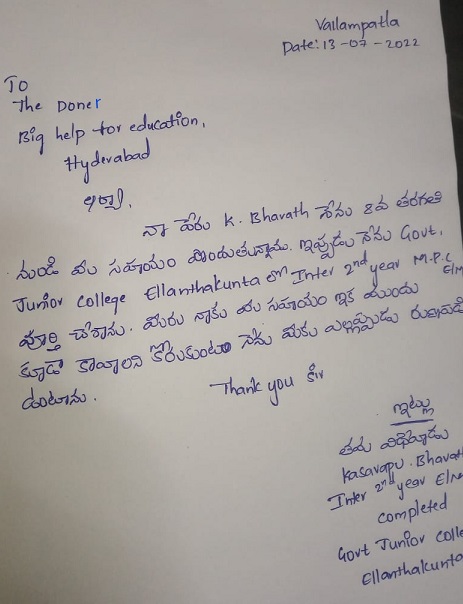 Vallampatla
Date: 13-07-2022
To
The Doner
Big help for education,
Hyderabad
ఆర్యా,
నా పేరు K. Bharath నేను 8వ తరగతి
నుండి మీ సహాయం పొందుతున్నాను. ఇప్పుడు నేను Govt.
Junior College Ellanthakunta లో Inter 2nd year M.P.C
పూర్తి చేశాను. మీరు నాకు మీ సహాయం ఇక ముందు
కూడా కావాలని కోరుకుంటు నేను మీకు ఎల్లప్పుడు
ఉంటాను.
Thank you Sir
ఇట్లు
తమ విధేయుడు
Kasarapu. Bharath
Inter 2nd year
completed
Govt Junior Colle
Ellanthakunta